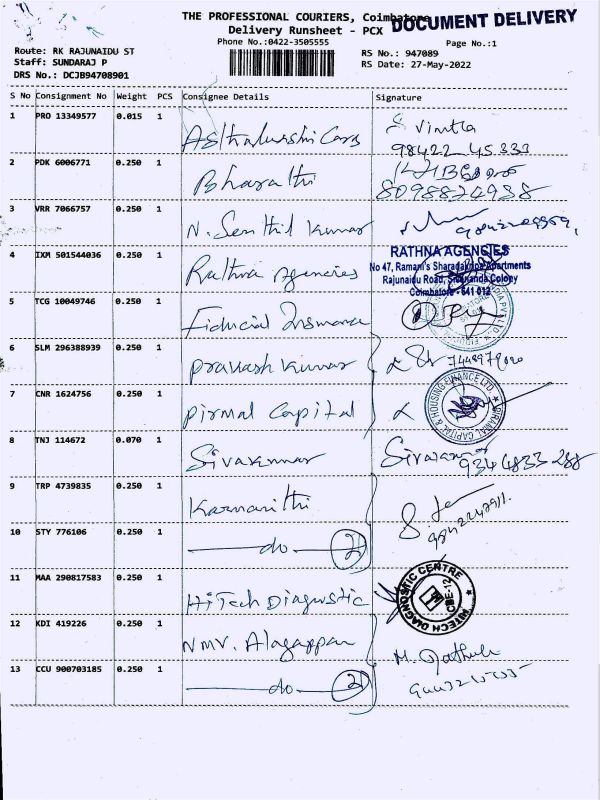 THE PROFESSIONAL COURIERS, Coimbatore
DOCUMENT DELIVERY
Delivery Runsheet - PCX
Phone No.:0422-3505555
Page No.:1
Route: RK RAJUNAIDU ST
Staff: SUNDARAJ P
DRS No.: DCJB94708901
RS No.: 947089
RS Date: 27-May-2022
S No Consignment No Weight PCS Consignee Details Signature
1 PRO 13349577 0.015 1 S Vimtla
98422 45333
2 PDK 6006771 0.250 1 Bharathi
8098824938
3 VRR 7066757 0.250 1 N. Senthil Kumar
4 IXM 501544036 0.250 1 Rathna Agencies
RATHNA AGENCIES
No 47, Ramani's Sharadakripa Apartments
Rajunaidu Road, Sivananda Colony
Coimbatore - 641 012
5 TCG 10049746 0.250 1 Fiducial Insurance
6 SLM 296388939 0.250 1 Prakash Kumar
7 CNR 1624756 0.250 1 Pirmal Capital
PIRAMAL CAPITAL & HOUSING FINANCE LTD.
8 TNJ 114672 0.070 1 Sivakumar
9344833288
9 TRP 4739835 0.250 1 Karnanithi
10 STY 776106 0.250 1 do 2
11 MAA 290817583 0.250 1 HiTech Diagnostic
HITECH DIAGNOSTIC CENTRE
CBE-12
12 KDI 419226 0.250 1 NMV. Alagappan
13 CCU 900703185 0.250 1 do 2